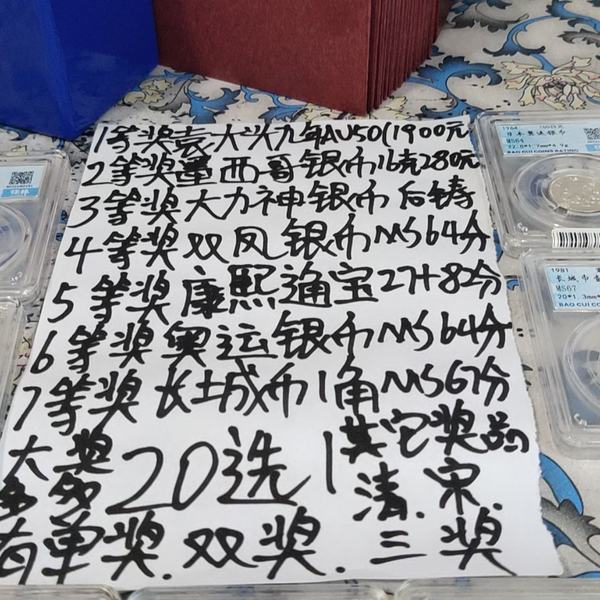 1等奖袁大头九年AU50(1900元
2等奖墨西哥银币16克280元
3等奖大力神银币后铸
4等奖双凤银币MS64分
5等奖康熙通宝27+82分
6等奖奥运银币MS64分
7等奖长城币1角MS67分
大奖多多20选1其它奖品清.宋.
有单奖.双奖.三奖
1964
日本奥运银币
MS64
BAO CUI COINS RATING
1981
长城币
MS67
BAO CUI COINS RATING